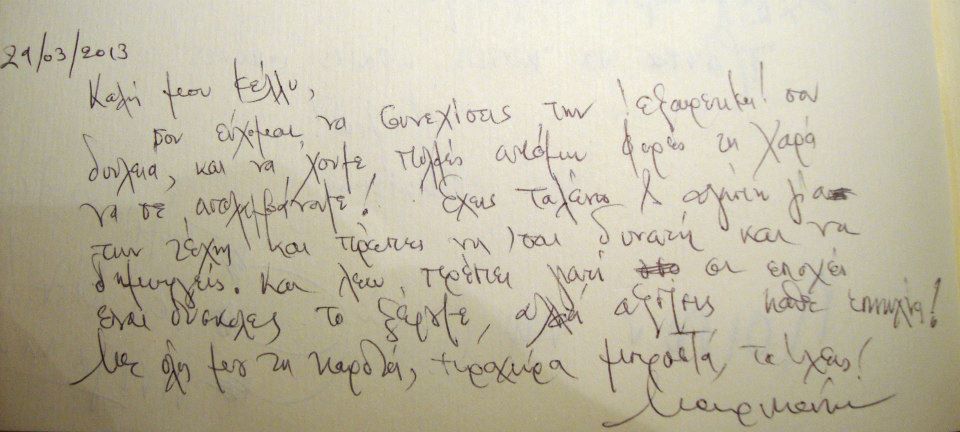 29/03/2013
Καλή μου Κέλλυ,
Σου εύχομαι, να συνεχίσεις την !εξαιρετική! σου
δουλειά, και να 'χουμε, πολλές ακόμη φορές τη χαρά
να σε απολαμβάνουμε! Έχεις ταλέντο & αγάπη για
την τέχνη και πρέπει να 'σαι δυνατή και να
δημιουργείς. Και λέω, πρέπει γιατί οι εποχές
είναι δύσκολες το ξέρουμε, αλλά αξίζεις κάθε επιτυχία!
Με όλη μου τη καρδιά, προχώρα μπροστά, το 'χεις!